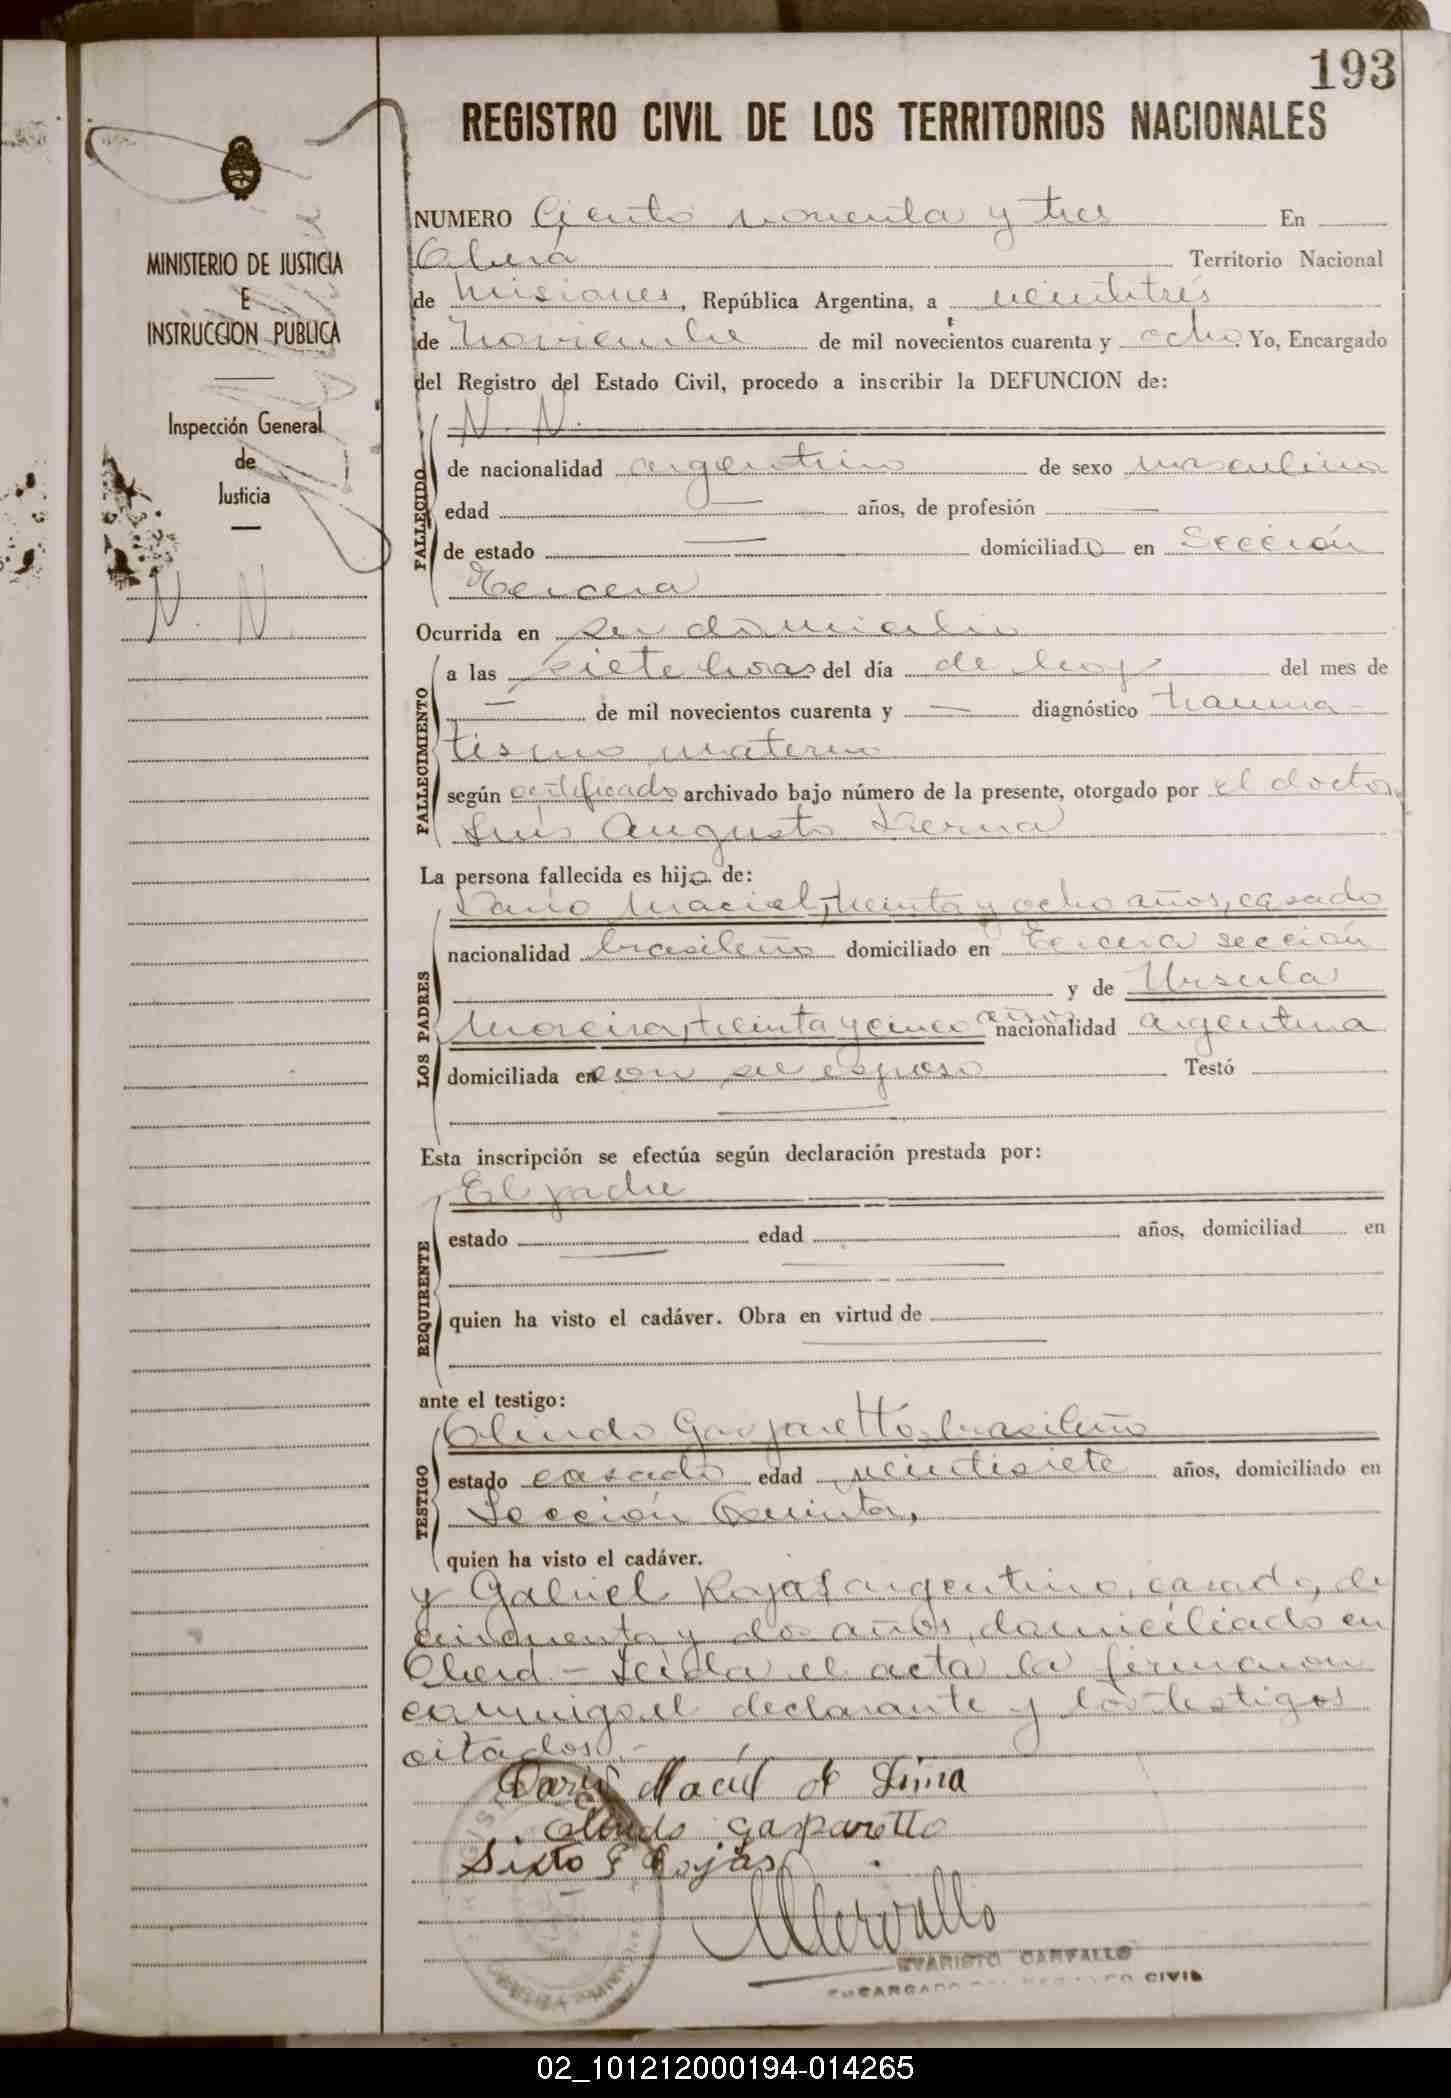 193
REGISTRO CIVIL DE LOS TERRITORIOS NACIONALES
MINISTERIO DE JUSTICIA
E
INSTRUCCION PUBLICA
Inspección General
de
Justicia
N. N.
NUMERO Ciento noventa y tres En
Oberá Territorio Nacional
de Misiones, República Argentina, a veintitrés
de Noviembre de mil novecientos cuarenta y ocho. Yo, Encargado
del Registro del Estado Civil, procedo a inscribir la DEFUNCION de:
FALLECIDO
N. N.
de nacionalidad argentino de sexo masculino
edad — años, de profesión —
de estado — domiciliado en Sección
Tercera
Ocurrida en su domicilio
FALLECIMIENTO
a las siete horas del día de hoy del mes de
— de mil novecientos cuarenta y — diagnóstico trauma-
tismo materno
según certificado archivado bajo número de la presente, otorgado por el doctor
Luis Augusto
La persona fallecida es hijo de:
LOS PADRES
Dario Maciel, treinta y ocho años, casado
nacionalidad brasileño domiciliado en Tercera sección
y de Ursula
Moreira, treinta y cinco años nacionalidad argentina
domiciliada en con su esposo Testó
Esta inscripción se efectúa según declaración prestada por:
REQUIRENTE
El padre
estado — edad — años, domiciliad en
quien ha visto el cadáver. Obra en virtud de
ante el testigo:
TESTIGO
Olindo Gasparetto, brasileño
estado casado edad veintisiete años, domiciliado en
Sección Quinta,
quien ha visto el cadáver.
y Gabriel Rojas, argentino, casado, de
cincuenta y dos años, domiciliado en
Oberá - Leída el acta la firmaron
conmigo el declarante y los testigos
citados.-
Dario Maciel de Lima
Olindo Gasparetto
Sixto G Rojas
EVARISTO CARVALLO
ENCARGADO DEL REGISTRO CIVIL
02_101212000194-014265